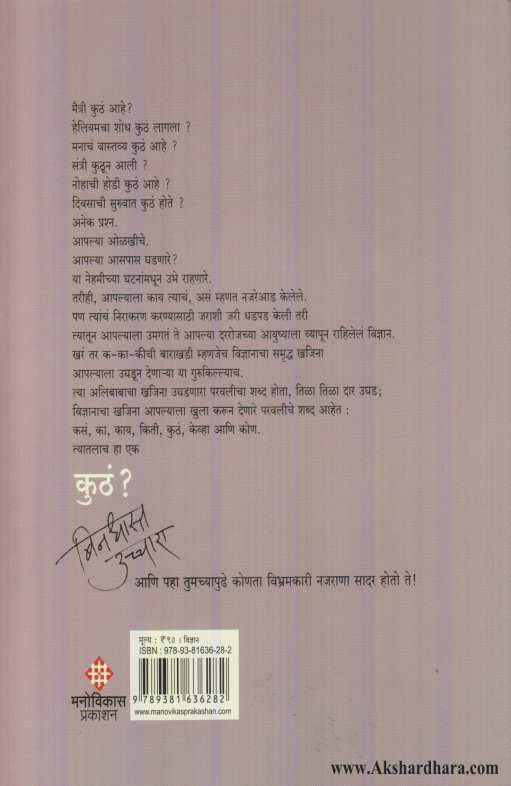 मैत्री कुठं आहे?
हेलियमचा शोध कुठं लागला ?
मनाचं वास्तव्य कुठं आहे ?
संत्री कुठून आली ?
नोहाची होडी कुठं आहे ?
दिवसाची सुरुवात कुठं होते ?
अनेक प्रश्न.
आपल्या ओळखीचे.
आपल्या आसपास घडणारे?
या नेहमीच्या घटनांमधून उभे राहणारे.
तरीही, आपल्याला काय त्याचं, असं म्हणत नजरेआड केलेले.
पण त्यांचं निराकरण करण्यासाठी जराशी जरी धडपड केली तरी
त्यातून आपल्याला उमगतं ते आपल्या दररोजच्या आयुष्याला व्यापून राहिलेलं विज्ञान.
खरं तर क-का-कीची बाराखडी म्हणजेच विज्ञानाचा समृद्ध खजिना
आपल्याला उघडून देणाऱ्या या गुरुकिल्ल्याच.
त्या अलिबाबाचा खजिना उघडणारा परवलीचा शब्द होता, तिळा तिळा दार उघड;
विज्ञानाचा खजिना आपल्याला खुला करून देणारे परवलीचे शब्द आहेत :
कसं, का, काय, किती, कुठं, केव्हा आणि कोण.
त्यातलाच हा एक
कुठं ?
बिनधास्त
उच्चारा
आणि पहा तुमच्यापुढे कोणता विभ्रमकारी नजराणा सादर होतो ते!
मूल्य : ₹ ९० । विज्ञान
ISBN : 978-93-81636-28-2
9 789381 636282
www.manovikasprakashan.com
मनोविकास
प्रकाशन
www.Akshardhara.com